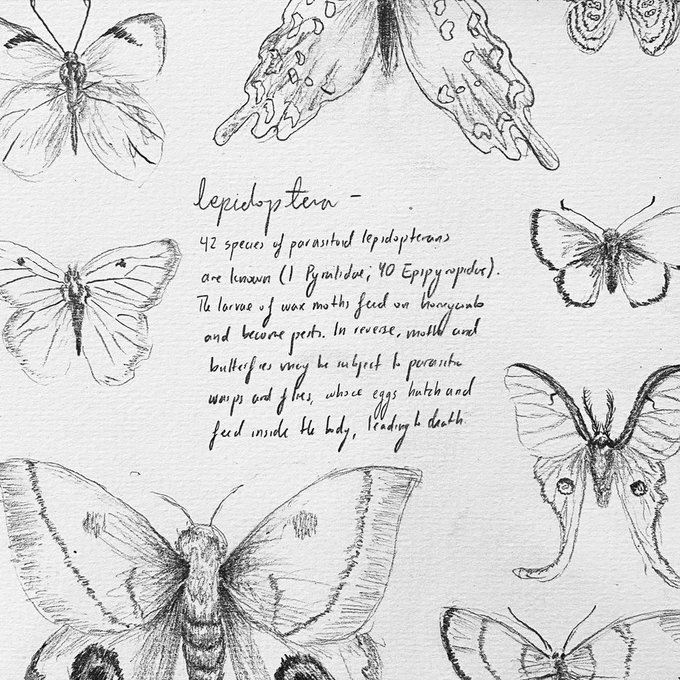 lepidoptera -
42 species of parasitoid lepidopterans
are known (1 Pyralidae; 40 Epipyropidae).
The larvae of wax moths feed on honeycomb
and become pests. In reverse, moths and
butterflies may be subject to parasitic
wasps and flies, whose eggs hatch and
feed inside the body, leading to death.